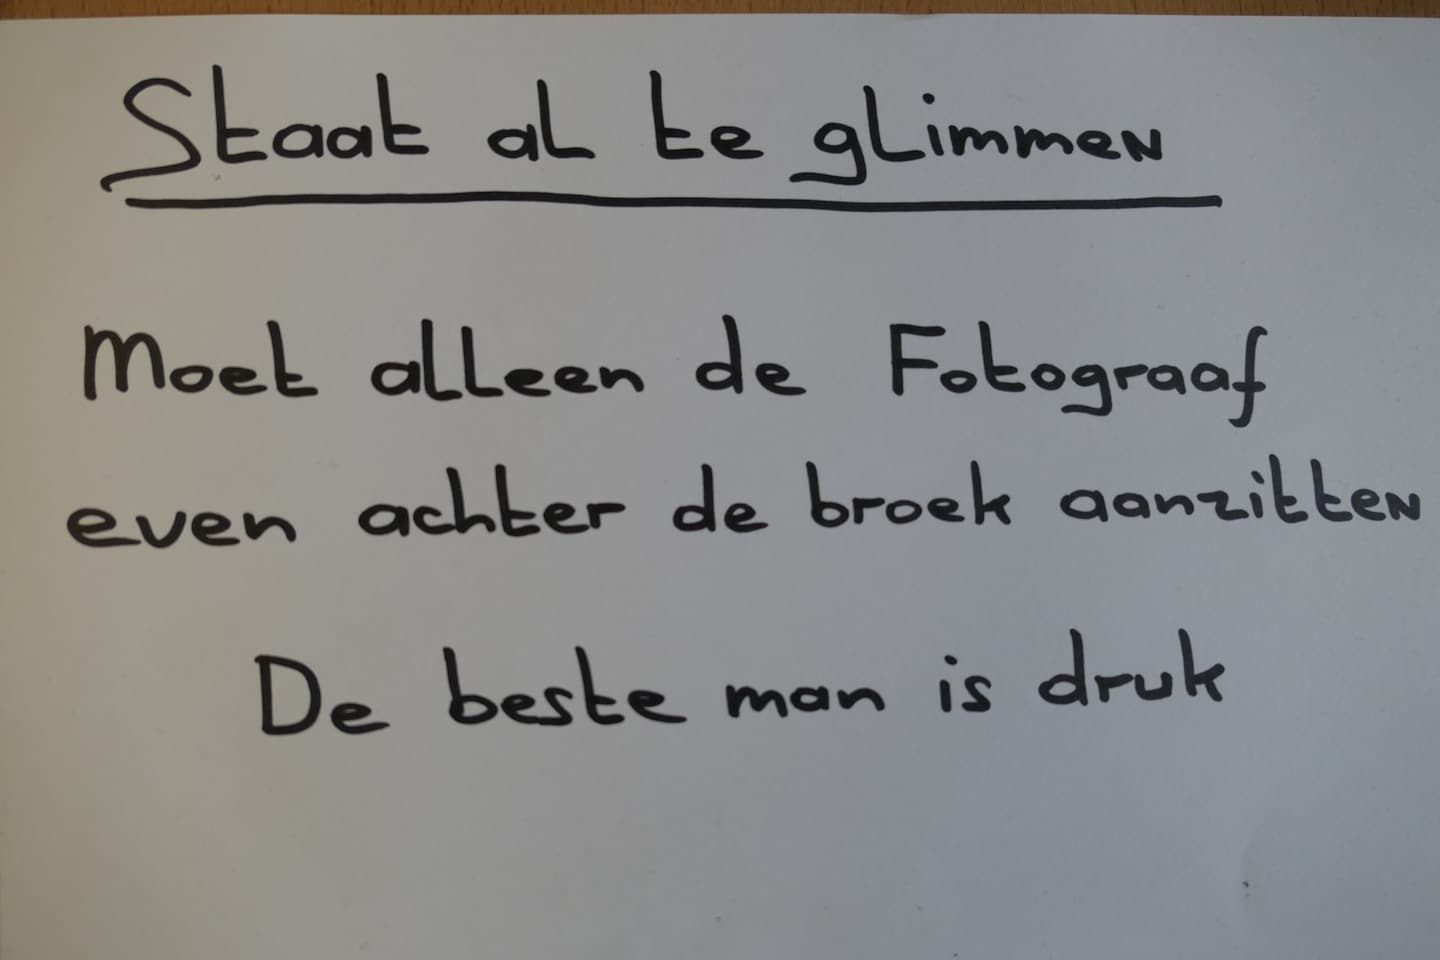 Staat al te glimmen
Moet alleen de Fotograaf
even achter de broek aanzitten
De beste man is druk